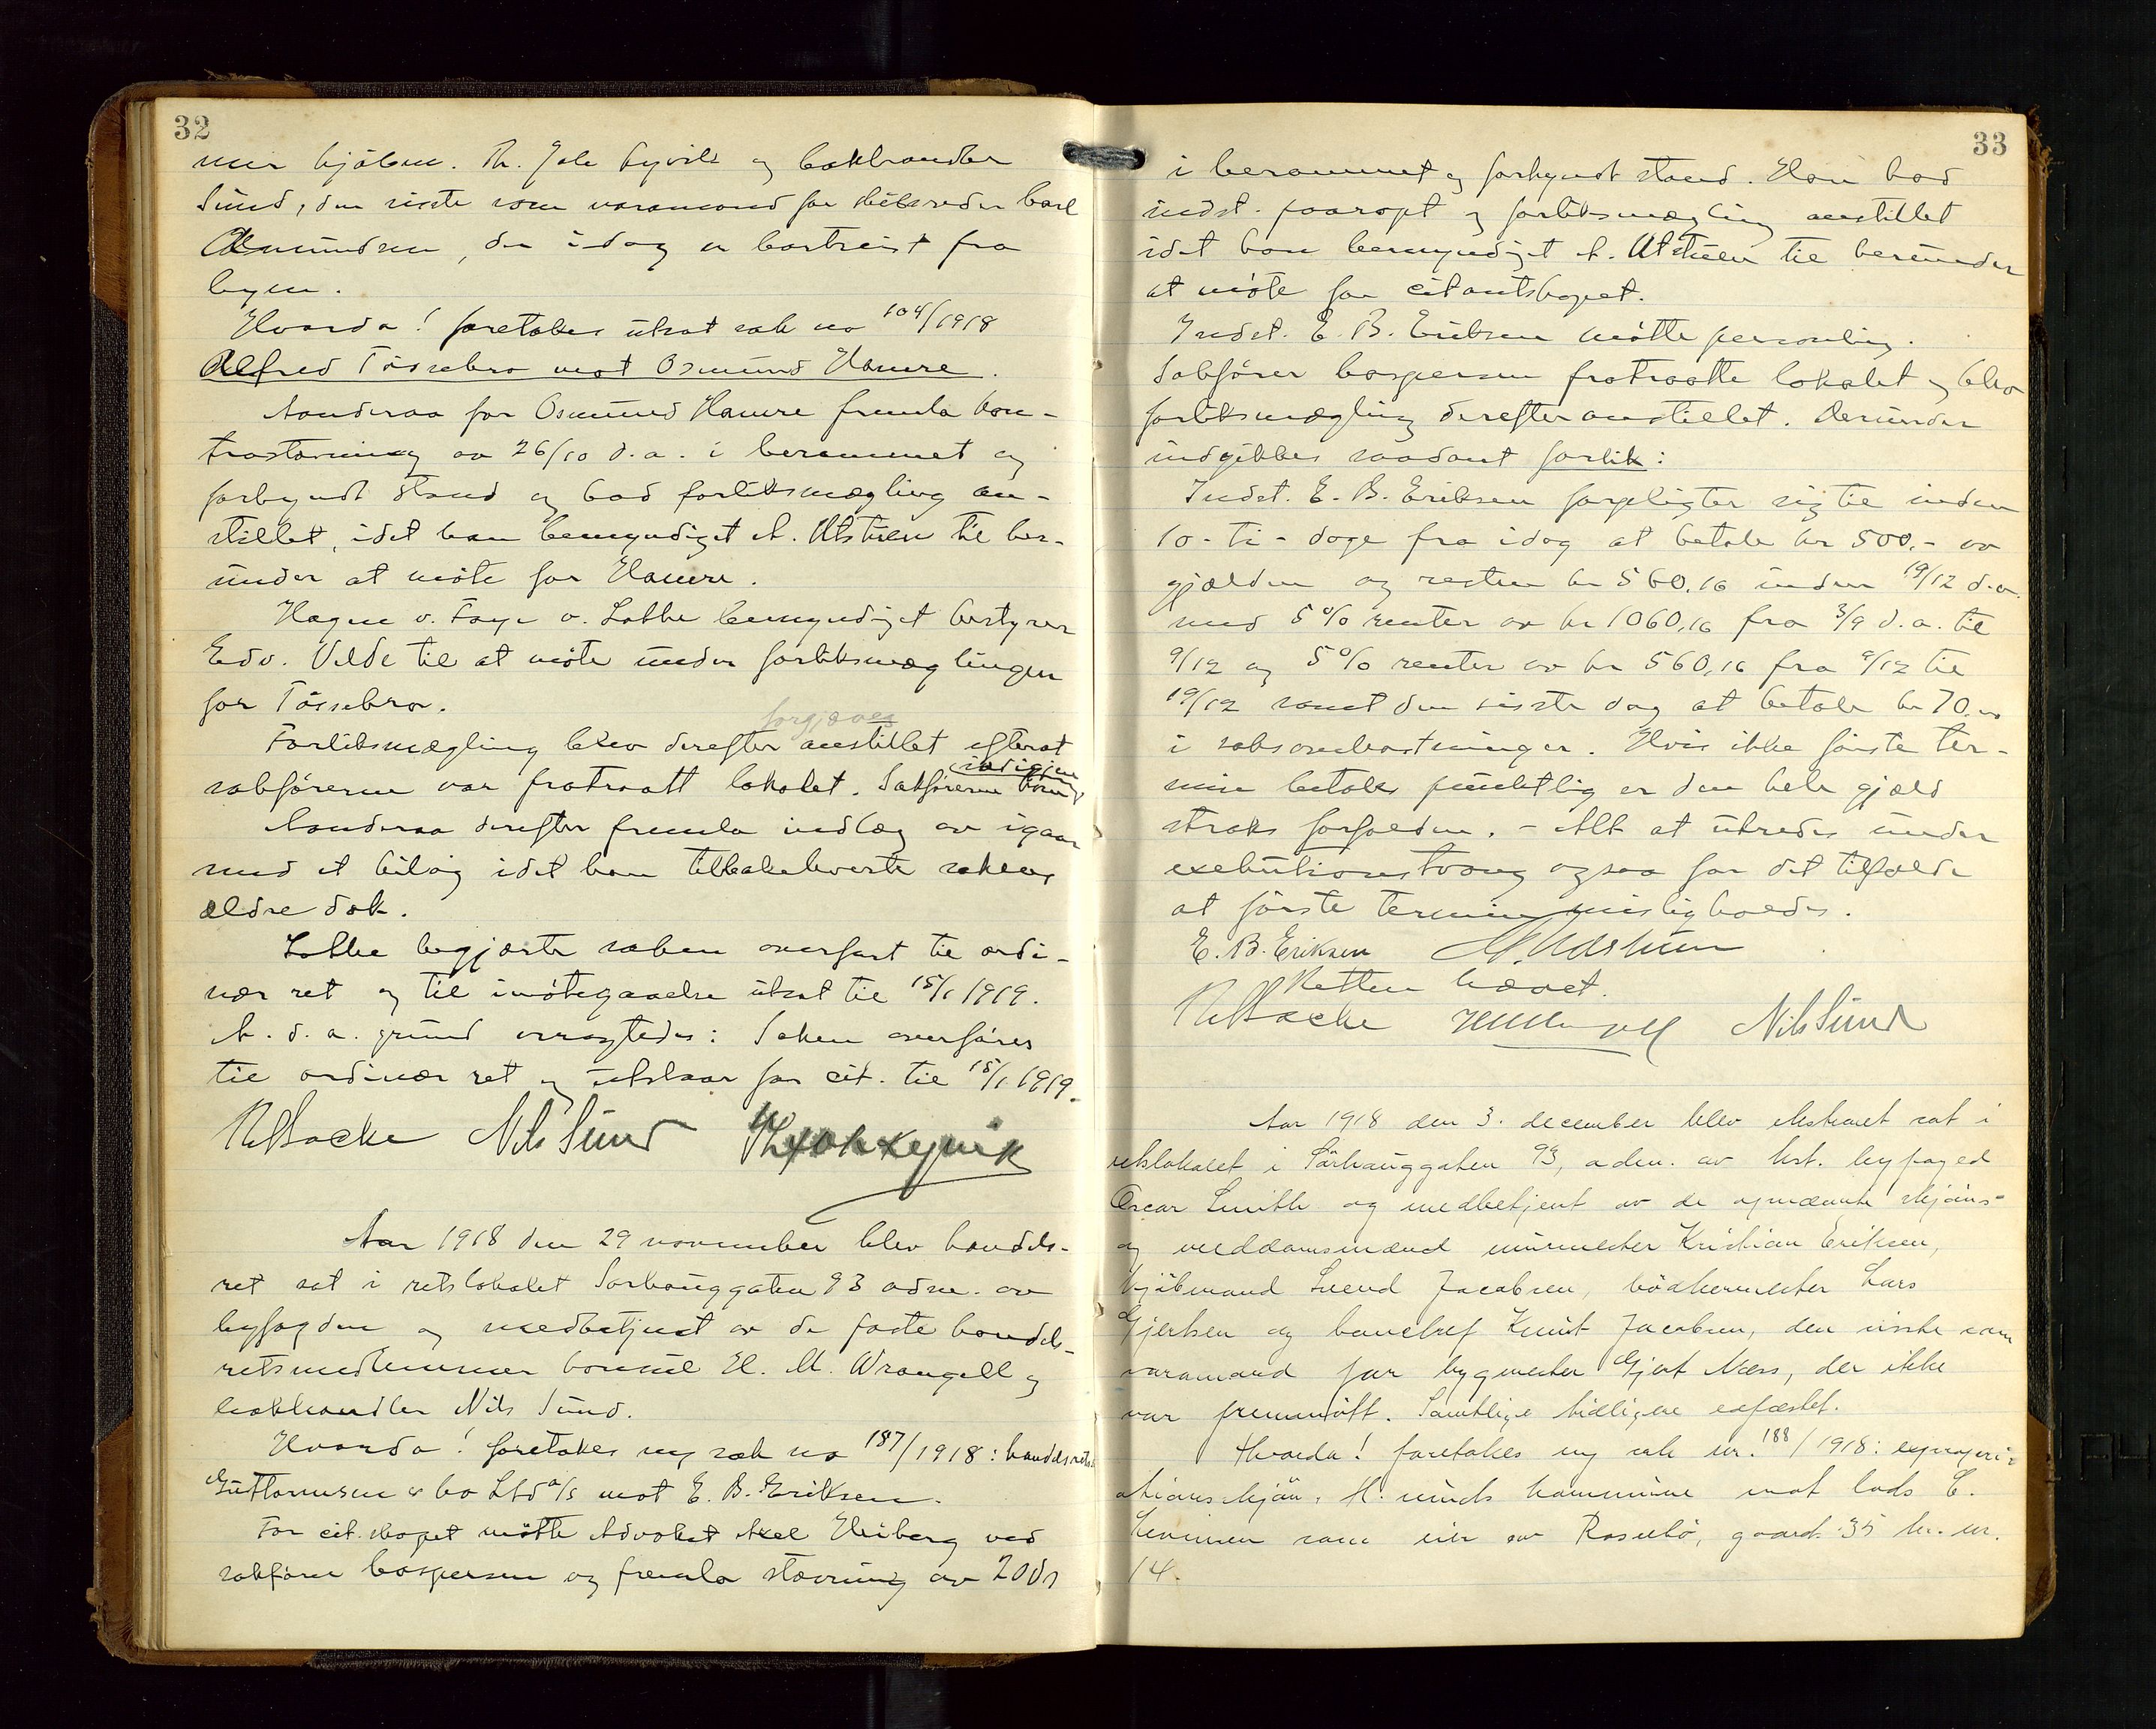 32
mer kjöbm. Th. Joh Kyvik og bokhandler
Sund, den siste som varamand for skibsreder Carl
Amundsen, der idag er bortreist fra
byen.
Hvorda! foretokes utsat sak no 104/1918
Alfred Tössebro mot Osmund Hamre.
Aanderaa for Osmund Hamre fremla kon-
trastævning av 26/10 d.a. i berammet og
forkyndt stand og bad forliksmægling an-
stillet, idet han bemyndiget A. Utstuen til her-
under at möte for Hamre.
Hagen v. Faye v. Lothe bemyndiget bestyrer
Edv. Velde til at möte under forliksmæglingen
for Tössebro.
forgjæves
Forliksmægling blev derefter anstillet efterat
indigjen
sakförerne var fratraatt lokalet. Sakförerne kom
Aanderaa derefter fremla indlæg av igaar
med et bilag idet han tilbakeleverte sakens
ældre dok.
Lothe begjærte saken overfört til ordi-
nær ret og til imötegaaelse utsat til 15/1 1919.
A. d. a. grund vragtedes: Saken overföres
til ordinær ret og utstaar for cit. til 15/1 1919.
Nils Sund Th Joh Kyvik
Aar 1918 den 29 november blev handels-
ret sat i retslokalet Sörhauggaten 93 adm. av
byfogden og medbetjent av de faste handels-
retsmedlemmer konsul H. M. Wrangell og
bokhandler Nils Sund.
Hvorda! foretokes ny sak no 187/1918: handelsretssak
Guttormsen & Co Ltd a/s mot E. B. Eriksen.
For cit.skapet mötte Advokat Axel Heiberg ved
sakförer Caspersen og fremla stævning av 20ds
33
i berammet og forkyndt stand. Han bad
indst. paaropt og forliksmægling anstillet
idet han bemyndiget A. Utstuen til herunder
at möte for citantskapet.
Indst. E. B. Eriksen mötte personlig.
Sakförer Caspersen fratraatte lokalet og blev
forliksmægling derefter anstillet. Derunder
indgikkes saadant forlik:
Indst. E. B. Eriksen forpligter sig til inden
10 - ti - dage fra idag at betale kr 500.- av
gjælden og resten kr 560.16 inden 19/12 d.a.
med 5% renter av kr 1060,16 fra 3/9 d.a. til
9/12 og 5% renter av kr 560,16 fra 9/12 til
19/12 samt den siste dag at betale kr 70.00
i saksomkostninger. Hvis ikke förste ter-
min betales punktlig er den hele gjæld
straks forfalden. - Alt at utredes under
exekutionstvang ogsaa for det tilfælde
at förste termin misligholdes.
E. B. Eriksen A. Utstuen
Retten hævet.
Nils Sund
Aar 1918 den 3. december blev ekstraret sat i
retslokalet i Sörhauggaten 93, adm. av kst. byfoged
Oscar Smith og medbetjent av de opnævnte skjöns-
og meddomsmænd murmester Kristian Eriksen,
kjöbmand Svend Jacobsen, bödkermester Lars
Gjerksen og banchef Knut Jacobsen, den siste som
varamand for bygmester Gjert Næss, der ikke
var fremmött. Samtlige tidligere edfæstet.
Hvorda! foretokes ny sak nr. 188/1918: expropri-
ationsskjön. H.sunds kommune mot lods C.
som eier av Rossebö, gaards 35 br. nr.
14.